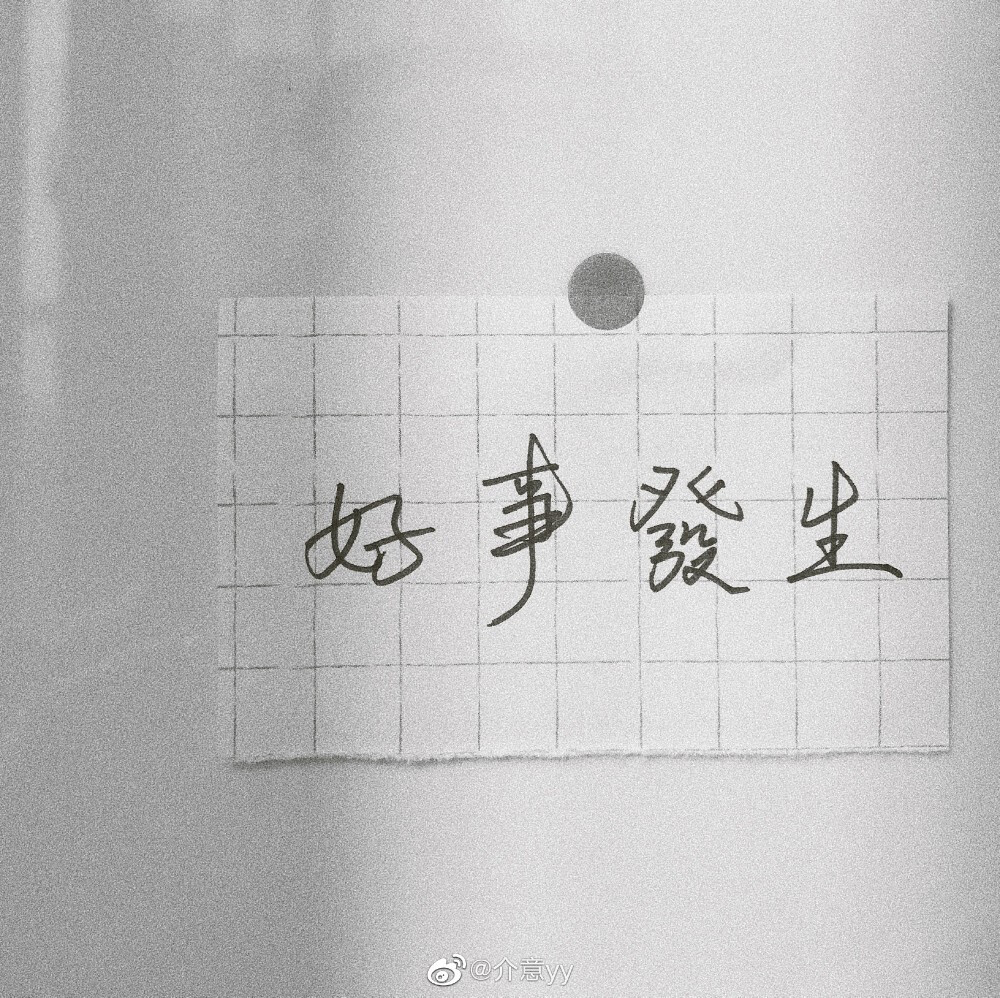 好事發生
@介意yy